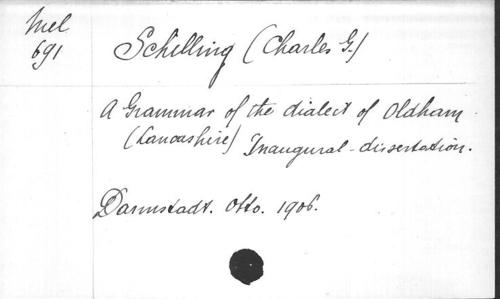 Mel
691
Schilling (Charles G.)
A Grammar of the dialect of Oldham
(Lancashire) Inaugural-dissertation.
Darmstadt. Otto. 1906.